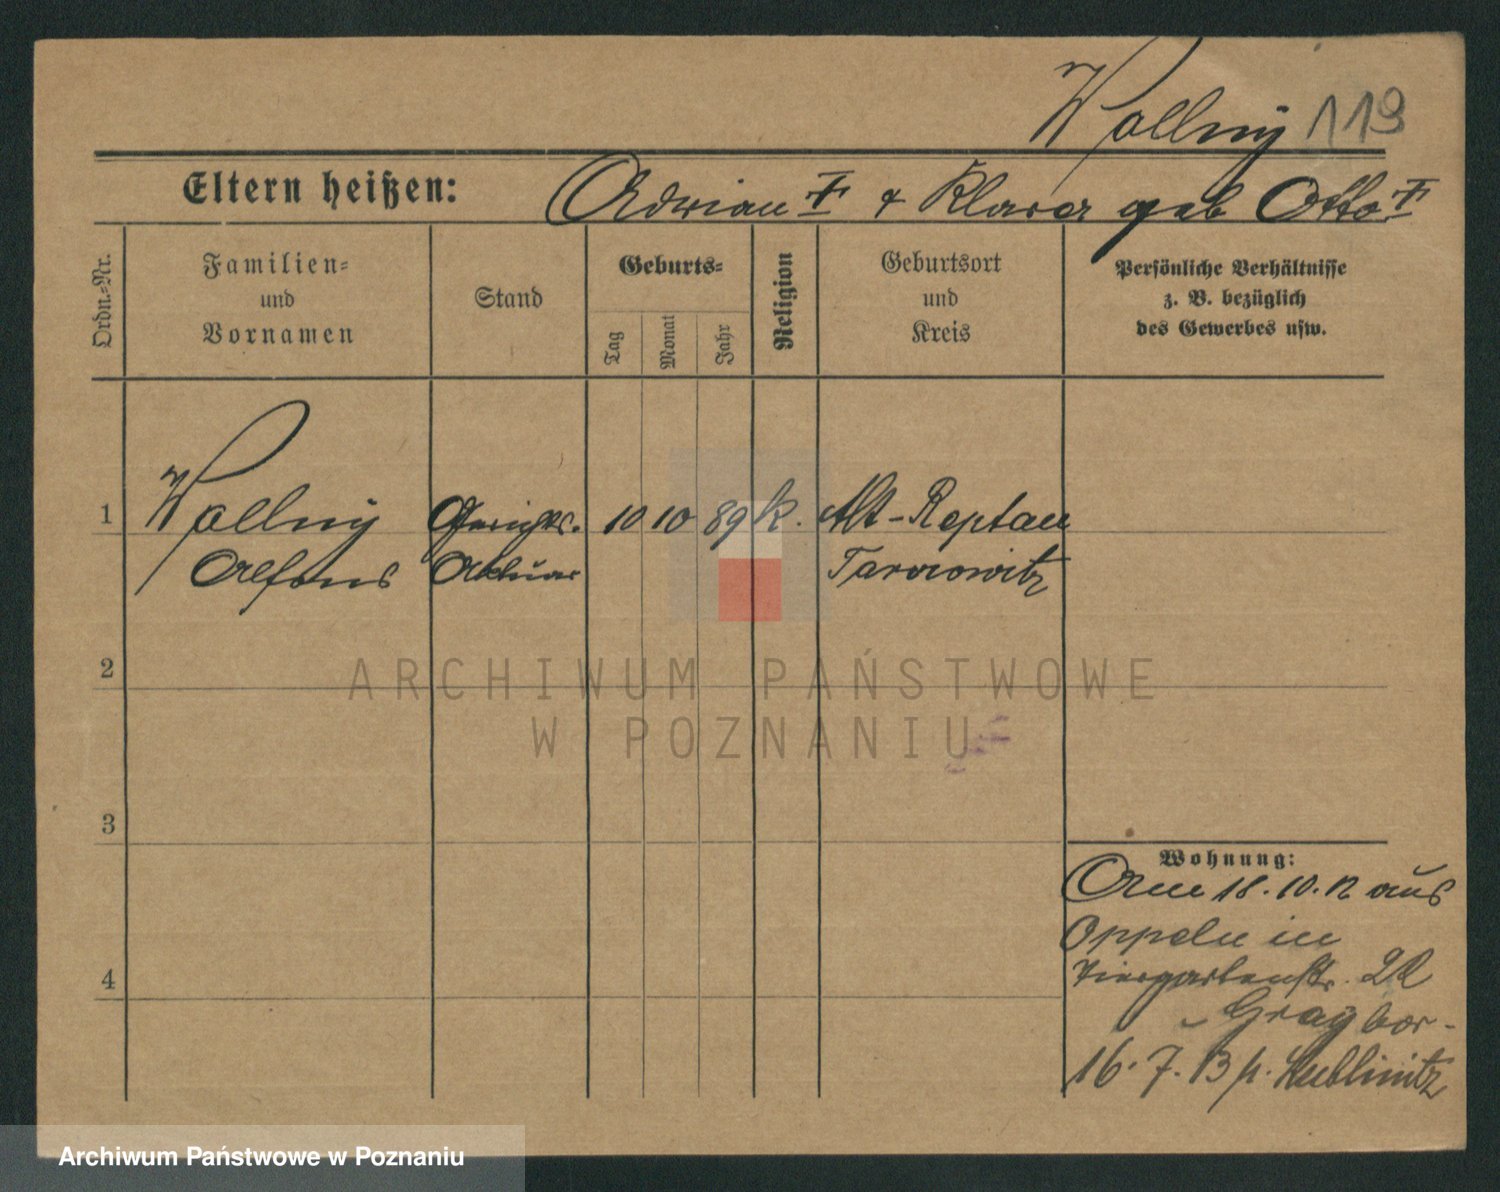 Wollny 119
Eltern heißen: Adrian † & Klara geb Otto †
Ordn.-Nr.
Familien-
und
Vornamen
Stand
Geburts-
Tag
Monat
Jahr
Religion
Geburtsort
und
Kreis
Persönliche Verhältnisse
z. B. bezüglich
des Gewerbes usw.
1 Wollny Gerichts. 10 10 89 k. Alt-Reptau
Alfons Aktuar Tarnowitz
2
ARCHIWUM PAŃSTWOWE
W POZNANIU
3
Wohnung:
Am 18.10.12 aus
Oppeln in
Tiergartenstr. 2
4
16.7.13 n. Lublinitz
Archiwum Państwowe w Poznaniu